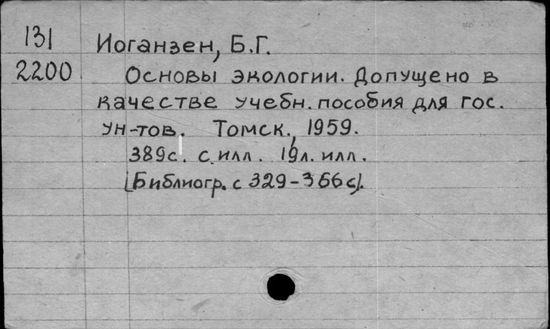 131 Иоганзен, Б.Г.
2200 Основы экологии. Допущено в
качестве учебн. пособия для гос.
ун-тов. Томск, 1959.
389с. с илл. 19л. илл.
[Библиогр. с 329-366с].